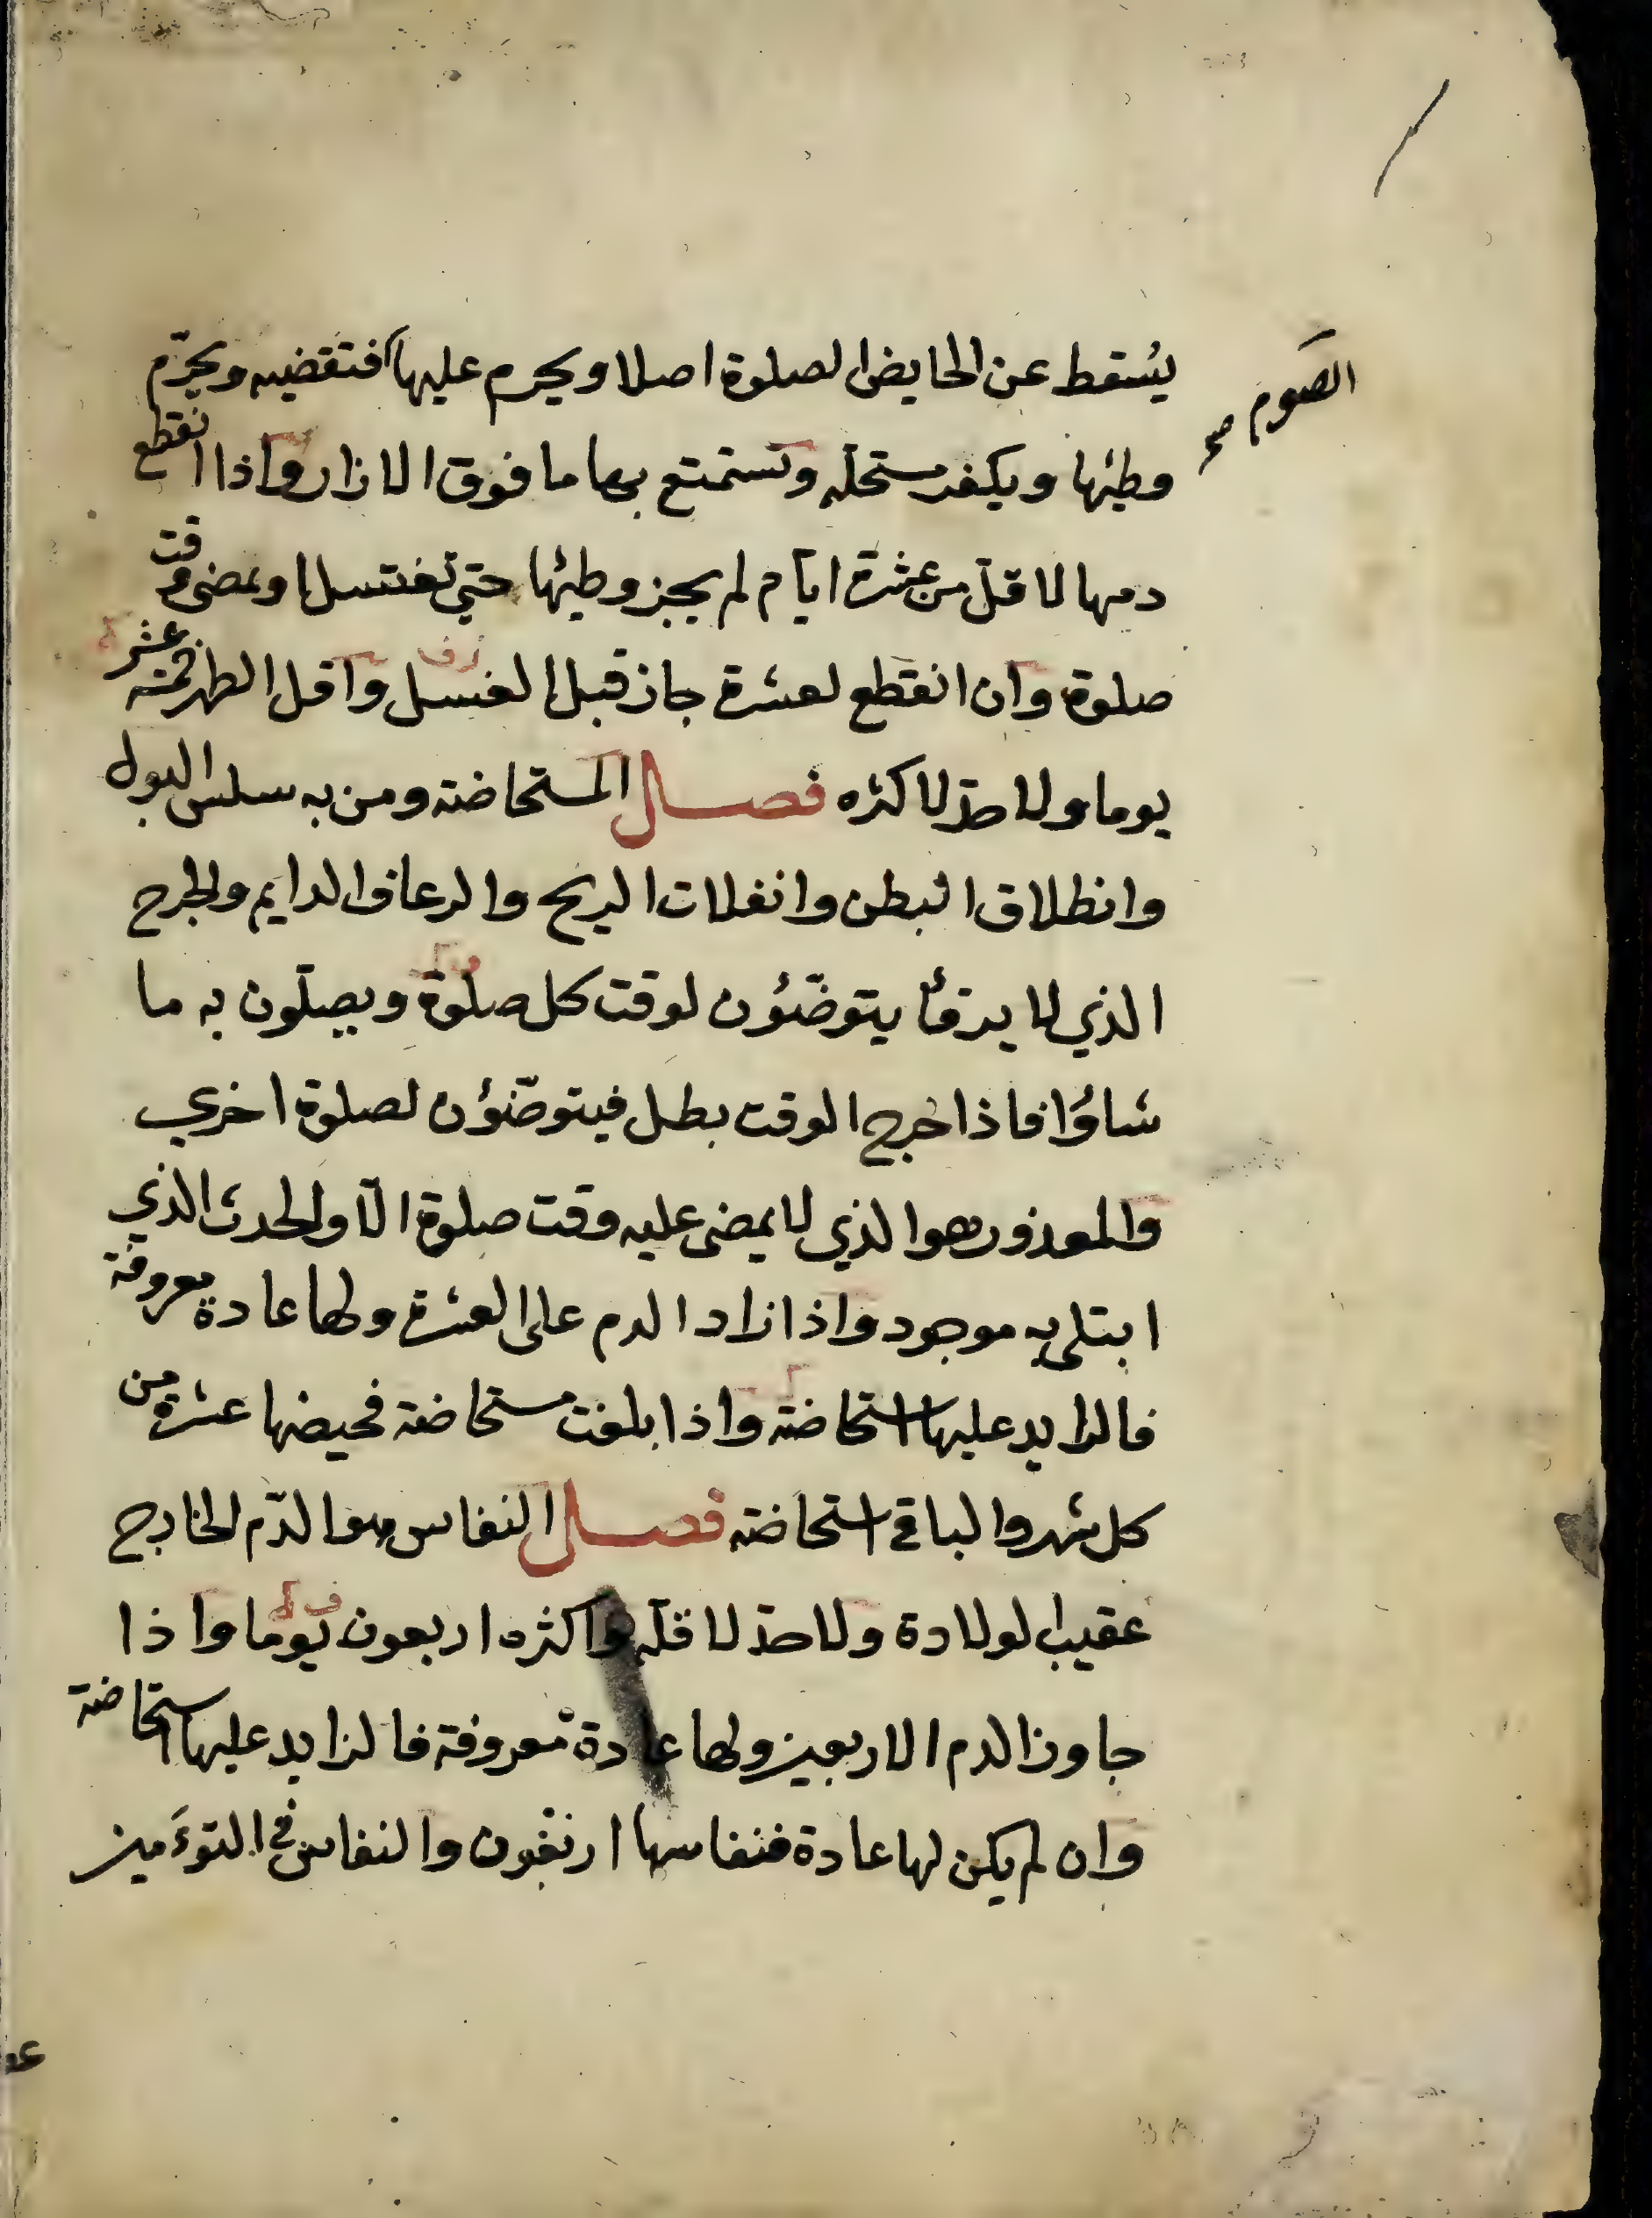 يسقط عن الحايض الصلوة اصلا ويحرم عليها فتقضيه ويحرّم
الصوم صح
وطئها ويكفر مستحله وتستمتع بها ما فوق الازار واذا انقطع
دمها لاقل من عشرة ايام لم يجز وطئها حتي تغتسل او يمضى وقت
صلوة وان انقطع لعشرة جاز قبل الغسل واقل الطهر خمسة عشر
يوما ولاحدّ لاكثره فصل المستحاضة ومن به سلس البول
وانطلاق البطن وانفلات الريح والرعاف الدايم والجرح
الذي لا يرقأ يتوضّئون لوقت كل صلوة ويصلّون به ما
شاؤا فاذا خرج الوقت بطل فيتوضّؤن لصلوة اخري
والمعذور هو الذي لا يمضى عليه وقت صلوة الّا والحدث الذي
ابتلى به موجود واذا زاد الدم على العشرة ولها عادة معروفة
فالزايد عليها استحاضة واذا بلغت مستحاضة فحيضها عشرة من
كل شهر والباقي استحاضة فصل النفاس هو الدّم الخارج
عقيب الولادة ولاحدّ لاقلّه واكثره اربعون يوما واذا
جاوز الدم الاربعين ولها عادة معروفة فالزايد عليها استحاضة
وان لم يكن لها عادة فنفاسها اربعون والنفاس في التوءَمين